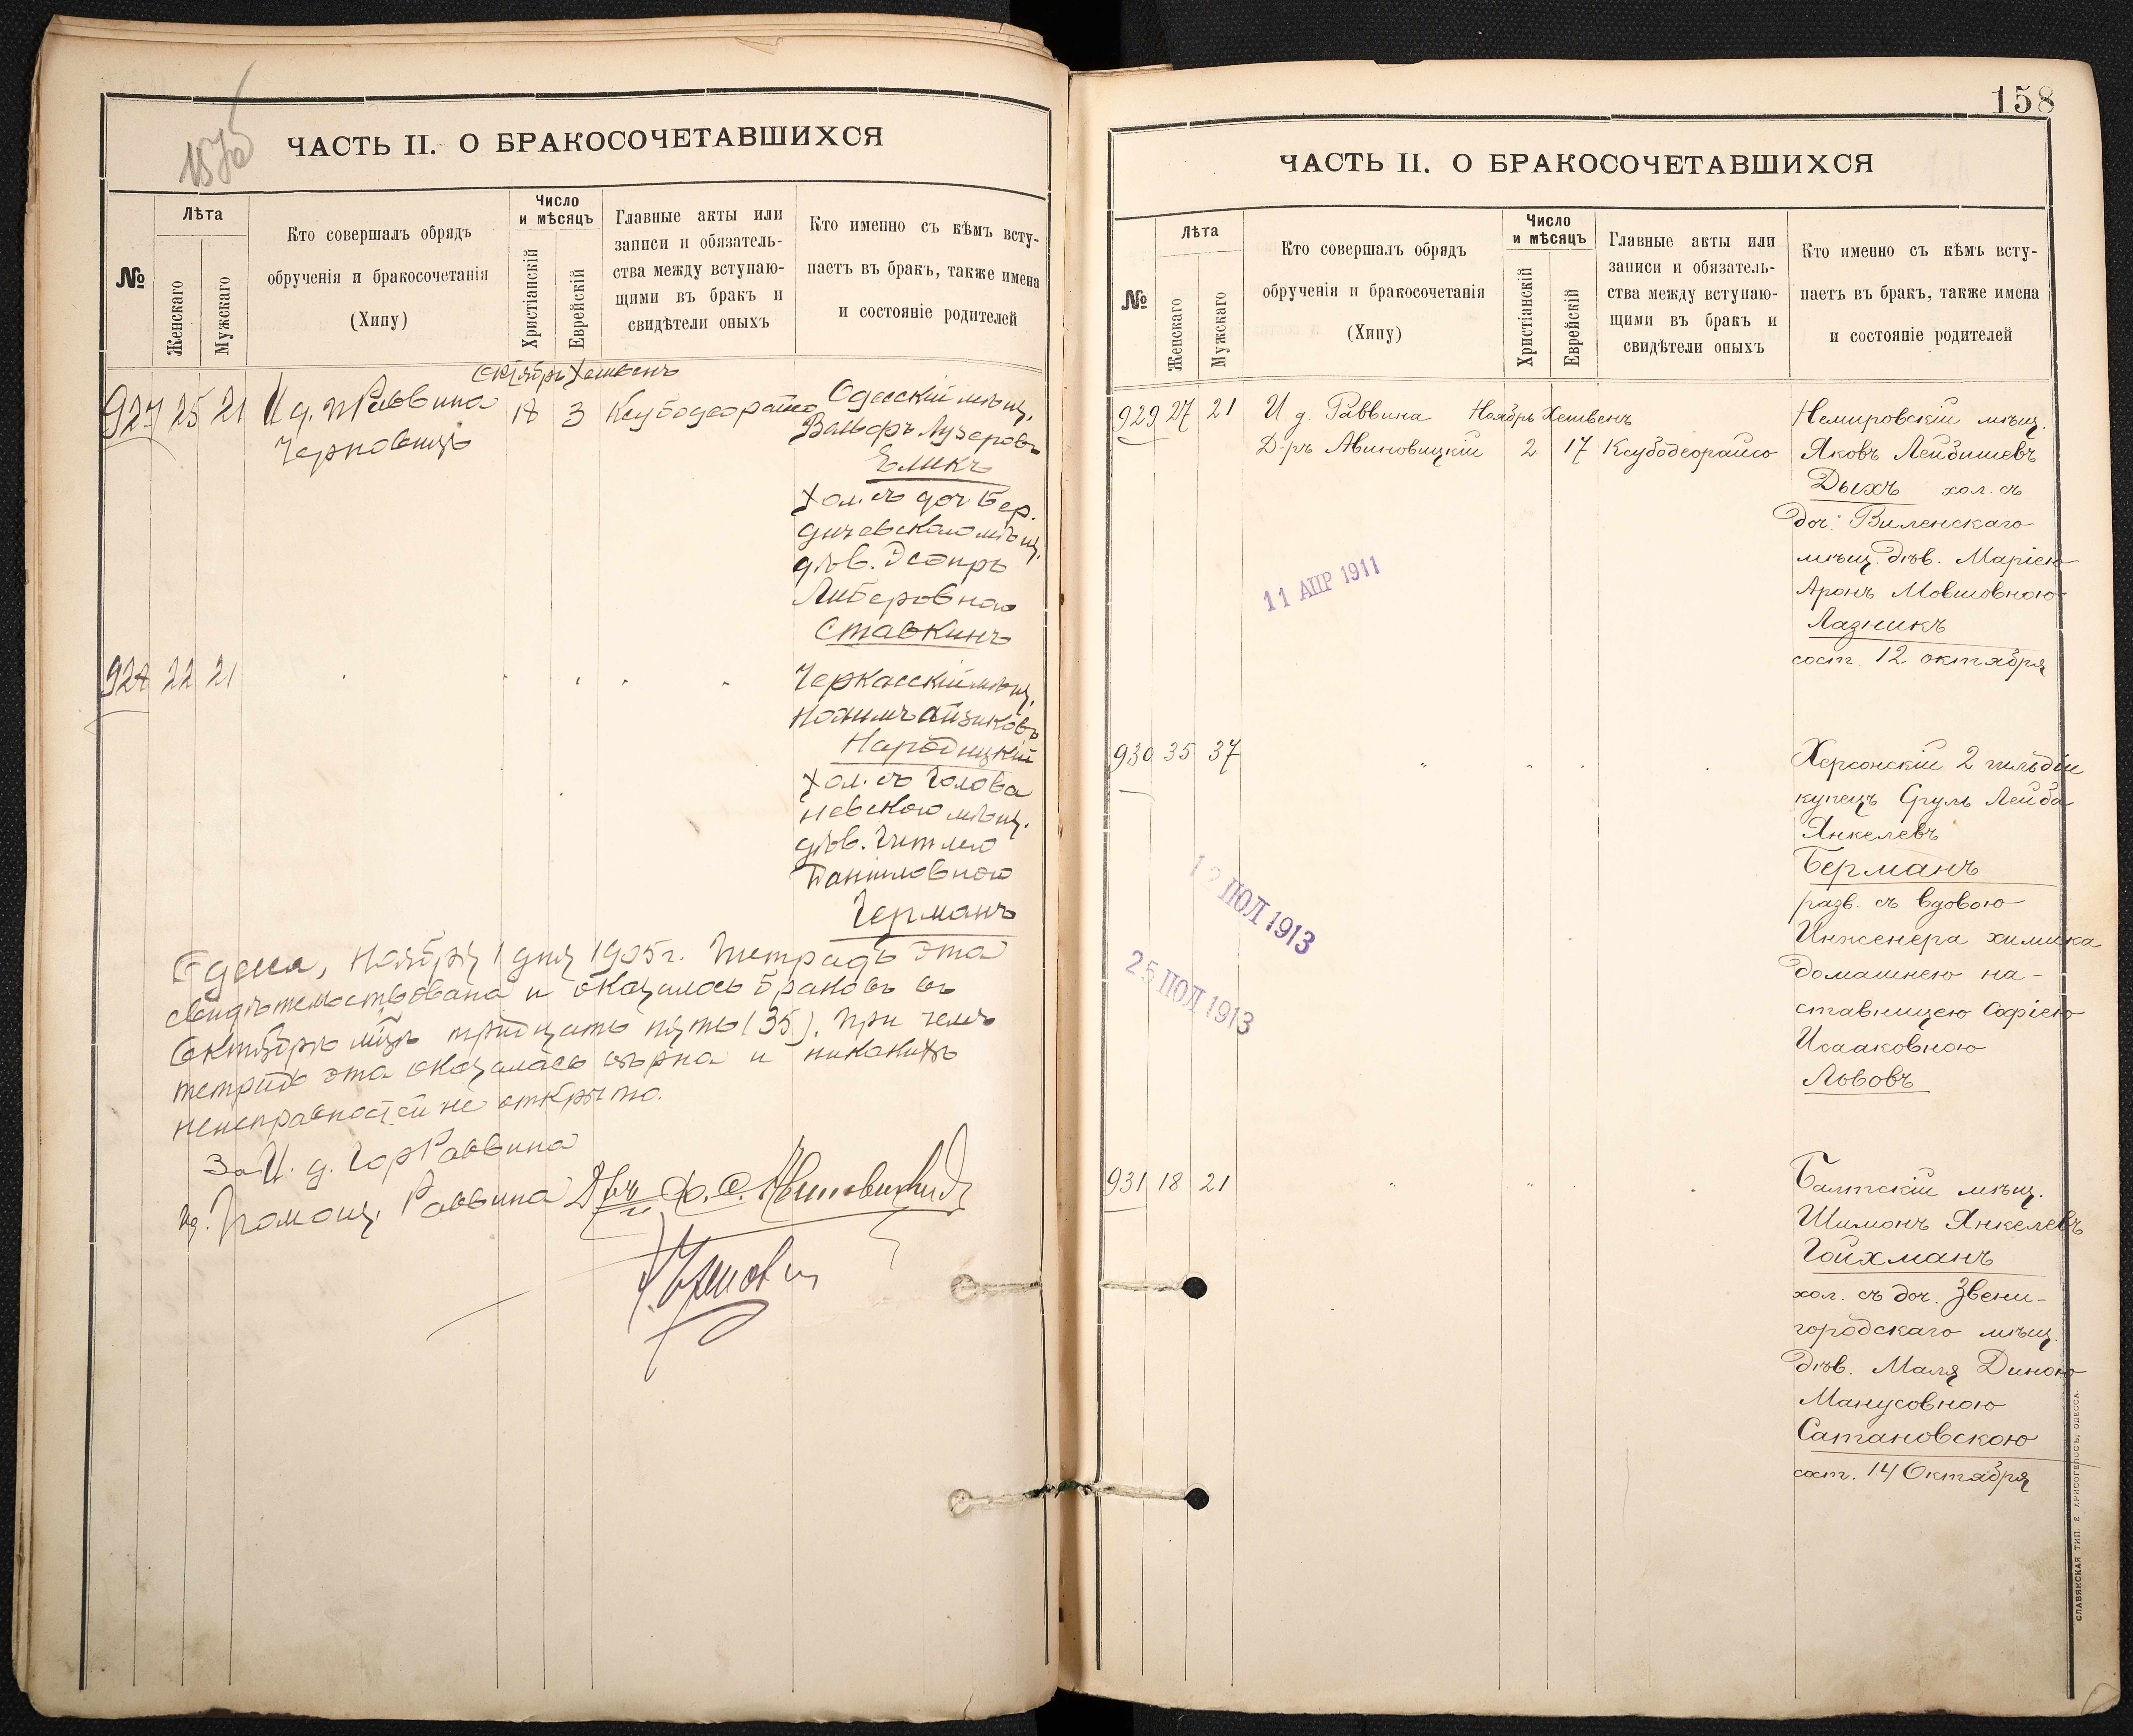 157об
ЧАСТЬ II. О БРАКОСОЧЕТАВШИХСЯ
№
Лѣта
Женскаго
Мужскаго
Кто совершалъ обрядъ
обрученія и бракосочетанія
(Хипу)
Число
и мѣсяцъ
Христіанскій
Еврейскій
Главные акты или
записи и обязатель-
ства между вступаю-
щими въ бракъ и
свидѣтели оныхъ
Кто именно съ кѣмъ всту-
паетъ въ бракъ, также имена
и состояніе родителей
Октябрь Хешвенъ
927 25 21 И д. п Раввина 18 3 Ксубодеорайсо
Черновицъ
Одесскій мѣщ.
Вольфъ Лузеровъ
Бликъ
хол. съ доч Бер.
дичевскаго мѣщ.
дѣв. Эсѳирь
Либеровною
Ставкинъ
928 22 21
Черкасскій мѣщ.
Нохимъ Айзиковъ
Народицкій
хол. съ Голова
невскою мѣщ.
дѣв. Гитлею
Даниловною
Германъ
Одесса, Ноября 1 дня 1905 г. Тетрадь эта
свидѣтельствована и оказалось браковъ въ
Октябрѣ мѣсц тридцать пять (35). При чемъ
тетрадь эта оказалась вѣрна и никакихъ
неисправностей не открыто.
За И. д. Гор Раввина
ид. Помощ. Раввина Д-ръ Авиновицкій
158
ЧАСТЬ II. О БРАКОСОЧЕТАВШИХСЯ
№
Лѣта
Женскаго
Мужскаго
Кто совершалъ обрядъ
обрученія и бракосочетанія
(Хипу)
Число
и мѣсяцъ
Христіанскій
Еврейскій
Главные акты или
записи и обязатель-
ства между вступаю-
щими въ бракъ и
свидѣтели оныхъ
Кто именно съ кѣмъ всту-
паетъ въ бракъ, также имена
и состояніе родителей
929 27 21 И. д. Раввина Ноябрь Хешвенъ
Д-ръ Авиновицкій 2 17 Ксубодеорайсо
Немировскій мѣщ.
Яковъ Лейбишевъ
Дыхъ хол. съ
доч. Виленскаго
мѣщ. дѣв. Маріею
Аронъ Мовшовною
Лазникъ
сост. 12 октября
11 АПР 1911
930 35 37 " " " "
Херсонскій 2 гильдіи
купецъ Сруль Лейба
Янкелевъ
Берманъ
разв. съ вдовою
Инженера химика
домашнею на-
ставницею Софіею
Исааковною
Львовъ
12 ІЮЛ 1913
25 ІЮЛ 1913
931 18 21 " " " "
Балтскій мѣщ.
Шимонъ Янкелевъ
Гойхманъ
хол. съ доч. Звени-
городскаго мѣщ.
дѣв. Маля Диною
Манусовною
Сатановскою
сост. 14 Октября
СЛАВЯНСКАЯ ТИП. Е. ХРИСОГЕЛОСЪ, ОДЕССА.